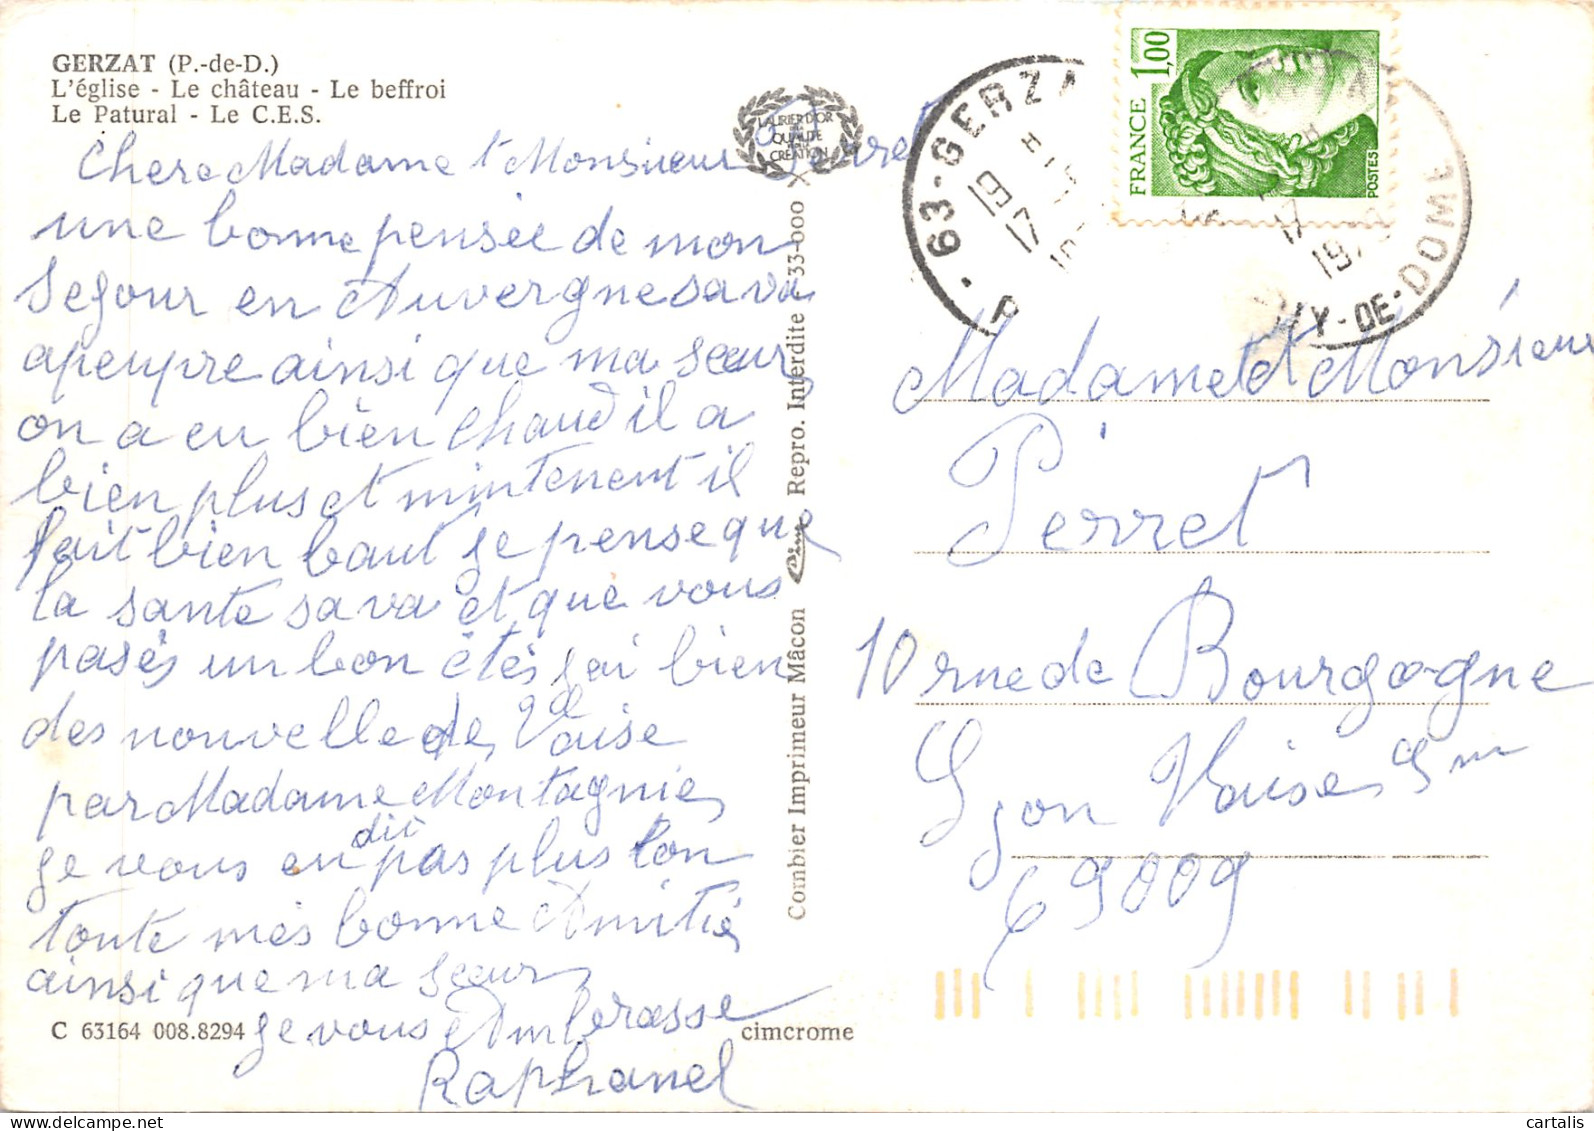 GERZAT (P.-de-D.)
L'église - Le château - Le beffroi
Le Patural - Le C.E.S.
Chere Madame et Monsieur Perret
une bonne pensée de mon
Sejour en Auvergne sa va
apeupre ainsi que ma sœur
on a eu bien chaud il a
bien plus et mintenent il
fait bien baut je pense que
la santé sa va et que vous
pasés un bon étés j'ai bien
des nouvelle de Vaise
par Madame Montagnier
je vous en dit pas plus lon
toute mes bonne Amitiés
ainsi que ma sœur
je vous Amberasse
Raphanel
C 63164 008.8294
cimcrome
LAURIER D'OR
DE LA
QUALITÉ
DE LA
CRÉATION
Combier Imprimeur Mâcon Cim Repro. Interdite 33-000
63-GERZA
H
19
17
19
P
1,00
FRANCE
POSTES
17
197
PUY-DE-DOME
Madame et Monsieur
Perret
10 rue de Bourgogne
Lyon Vaise 9me
69009
cartalis